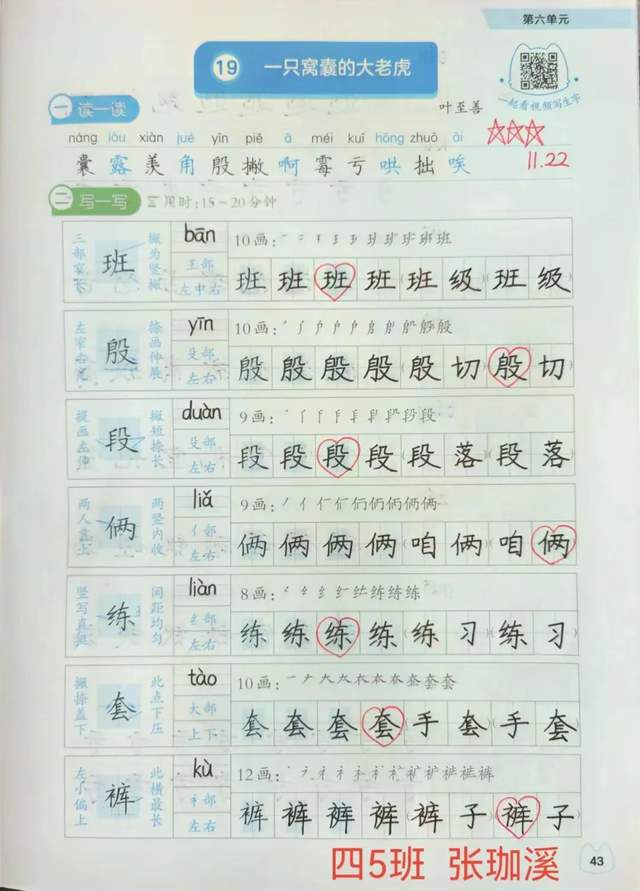 第六单元
19 一只窝囊的大老虎
一起看视频写生字
一 读一读
叶至善
náng lòu xiàn jué yīn piē ā méi kuī hōng zhuō āi
囊 露 羡 角 殷 撇 啊 霉 亏 哄 拙 唉
11.22
二 写一写 用时:15~20分钟
三部家长 班 撇为竖撇
bān
王部
左中右
10画:
班 班 班 班 班 级 班 级
殷 捺画伸展
yīn
殳部
左右
10画:
殷 殷 殷 殷 殷 切 殷 切
提画左伸 段 撇短捺长
duàn
殳部
左右
9画:
段 段 段 段 段 落 段 落
两人靠上 俩 两竖内收
liǎ
亻部
左右
9画:
俩 俩 俩 俩 咱 俩 咱 俩
竖写直挺 练 间距均匀
liàn
纟部
左右
8画:
练 练 练 练 练 习 练 习
撇捺盖下 套 此点下压
tào
大部
上下
10画:
套 套 套 套 手 套 手 套
左小偏上 裤 此横最长
kù
衤部
左右
12画:
裤 裤 裤 裤 裤 子 裤 子
四5班 张珈溪
43